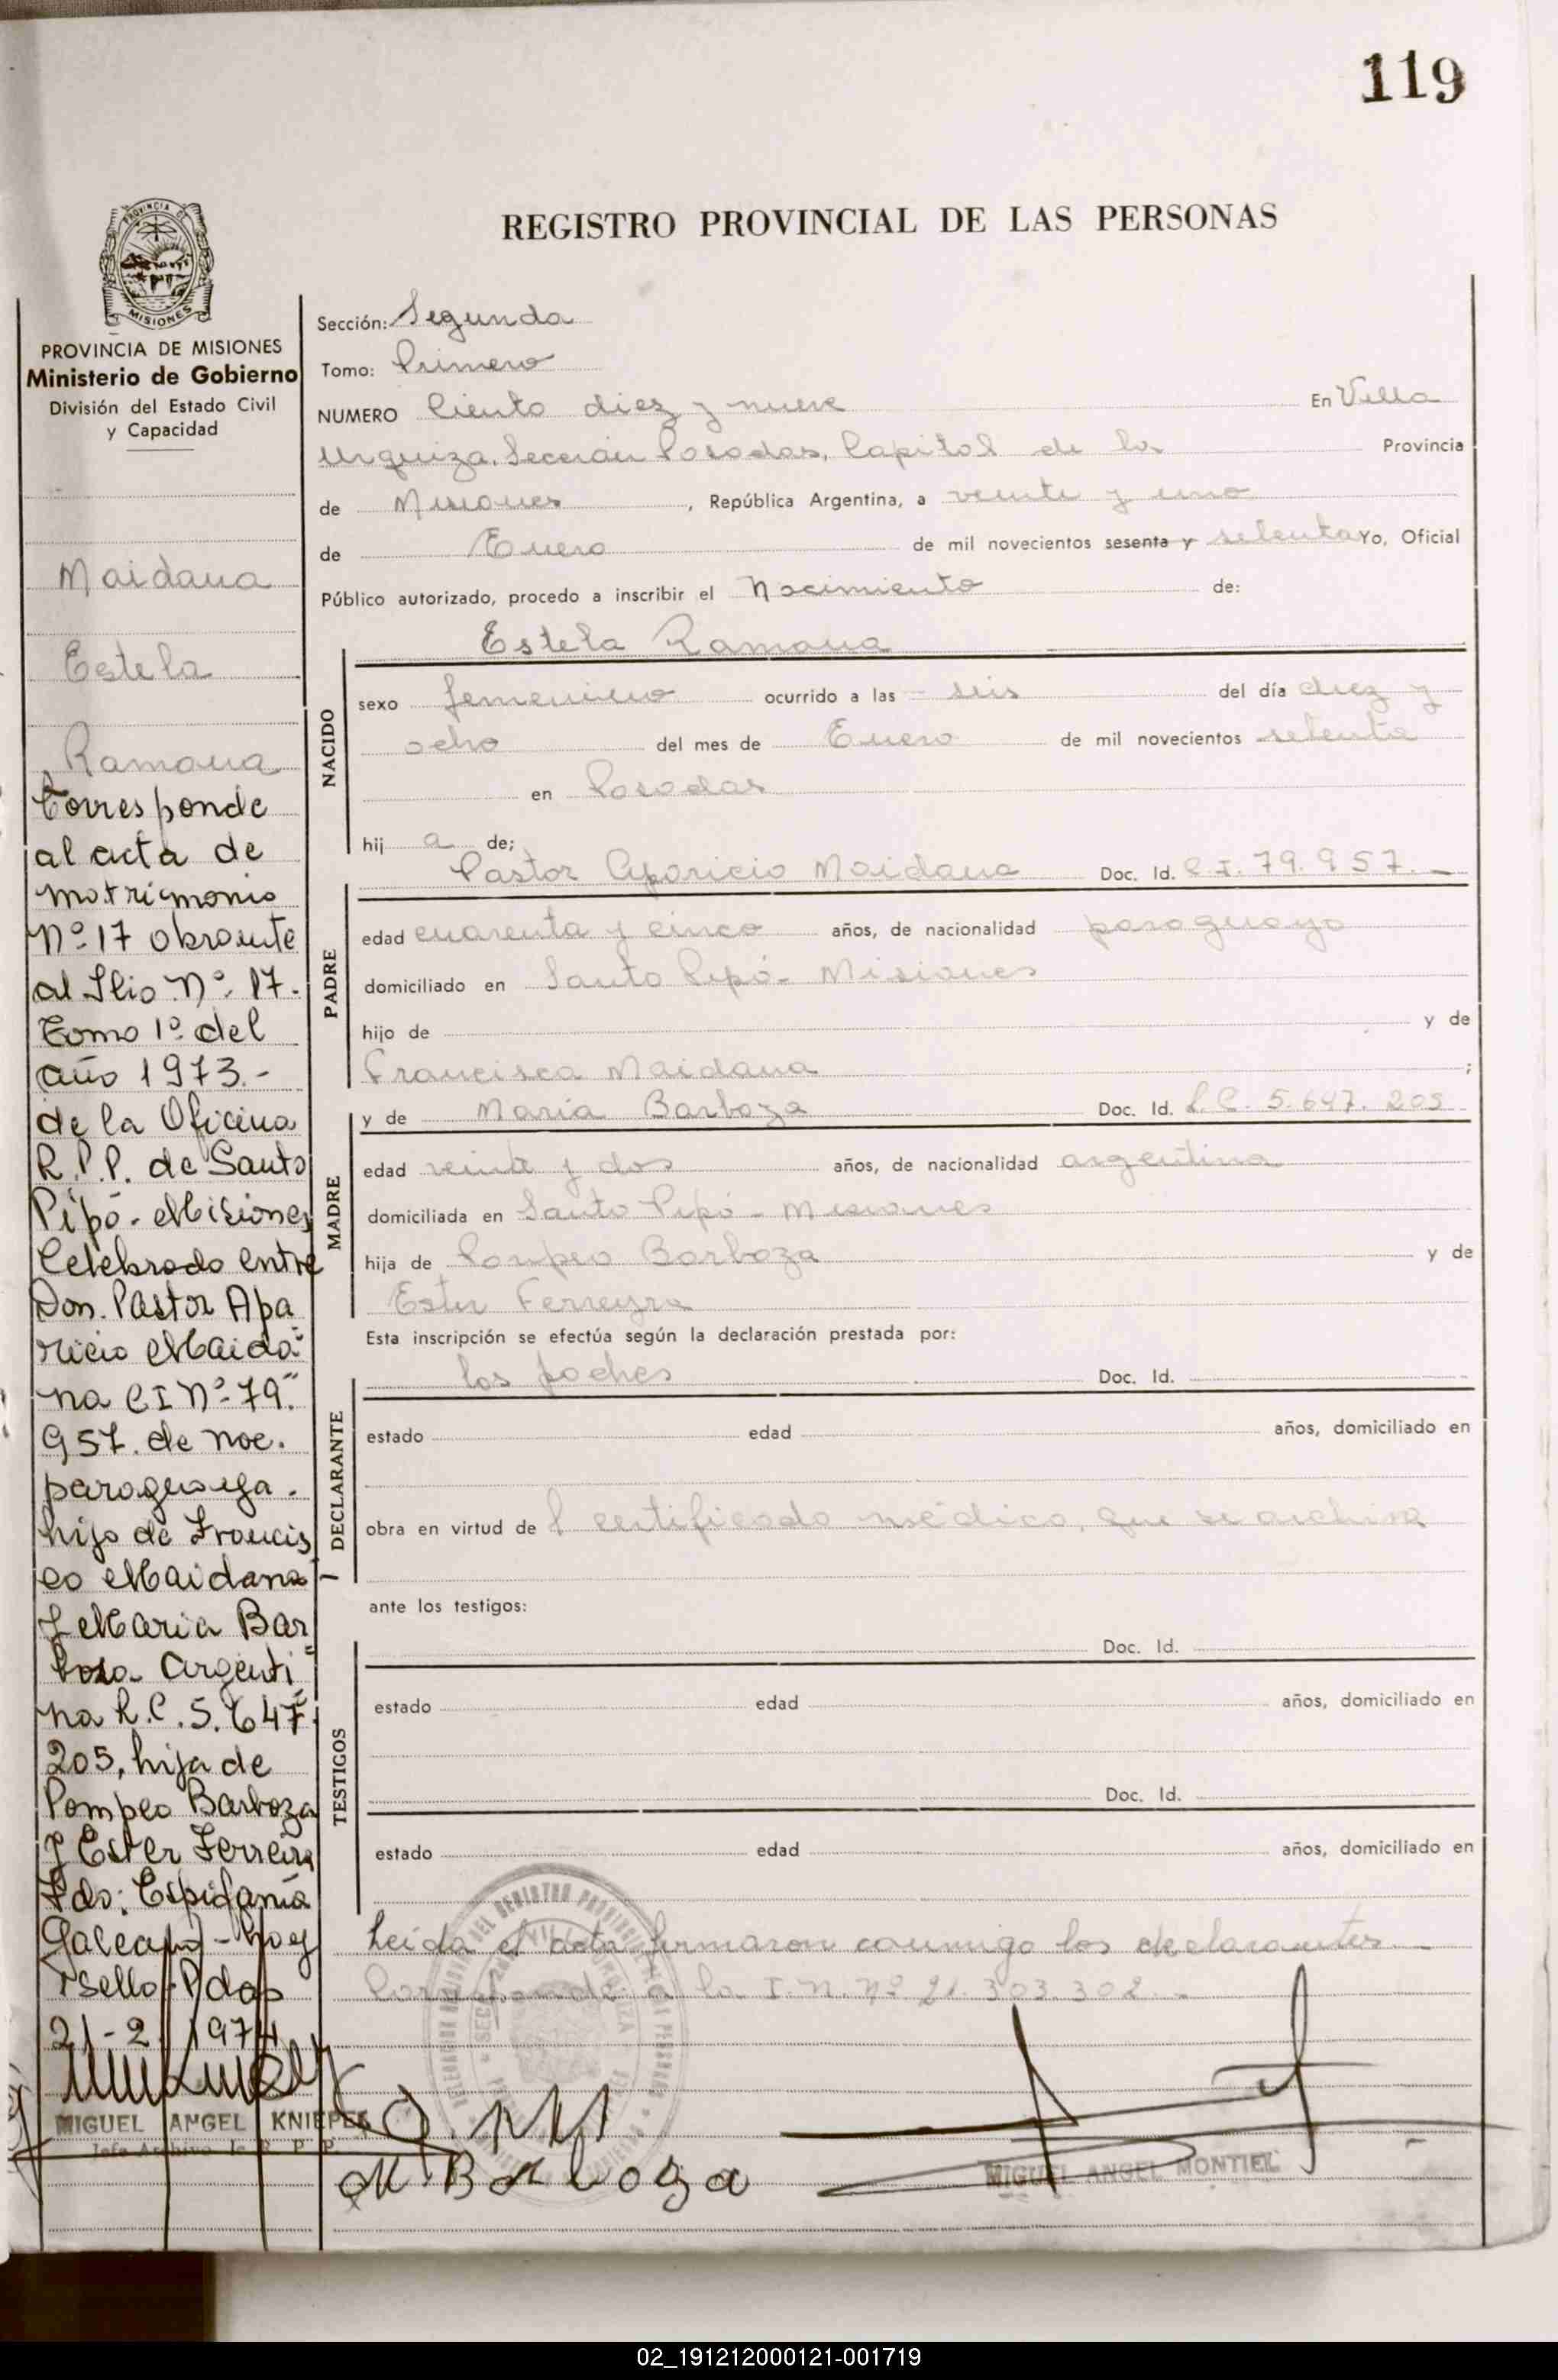 119
REGISTRO PROVINCIAL DE LAS PERSONAS
PROVINCIA DE
MISIONES
PROVINCIA DE MISIONES
Ministerio de Gobierno
División del Estado Civil
y Capacidad
Maidana
Estela
Ramona
Corresponde
al acta de
matrimonio
Nº 17 obrante
al Flio Nº 17.
Tomo 1º del
año 1973.-
de la Oficina
R.P.P. de Santo
Pipó - Misiones
Celebrado entre
Don. Pastor Apa
ricio Maida=
na C I Nº 79."
957. de nac.
paraguaya.
hijo de Francis
co Maidana
y Maria Bar
boza Argenti=
na L.C. 5.647.
205, hija de
Pompeo Barboza
y Ester Ferreira
Fdo: Espifania
Galeano - hay
sello Pdas
21-2-1974
MIGUEL ANGEL KNIEPER
Jefe Archivo de R. P. P.
Sección: Segunda
Tomo: Primero
NUMERO Ciento diez y nueve En Villa
Urquiza, Sección Posadas, Capital de la Provincia
de Misiones, República Argentina, a veinte y uno
de Enero de mil novecientos sesenta y setenta Yo, Oficial
Público autorizado, procedo a inscribir el Nacimiento de:
Estela Ramona
NACIDO
sexo femenino ocurrido a las seis del día diez y
ocho del mes de Enero de mil novecientos setenta
en Posadas
hij a de;
Pastor Aparicio Maidana Doc. Id. C.I. 79.957.-
PADRE
edad cuarenta y cinco años, de nacionalidad paraguayo
domiciliado en Santo Pipó - Misiones
hijo de y de
Francisca Maidana ;
y de Maria Barboza Doc. Id. L.C. 5.647.205
MADRE
edad veinte y dos años, de nacionalidad argentina
domiciliada en Santo Pipó - Misiones
hija de Pompeo Barboza y de
Ester Ferreyra
Esta inscripción se efectúa según la declaración prestada por:
los padres Doc. Id.
DECLARANTE
estado edad años, domiciliado en
obra en virtud de l certificado médico, que se archiva
ante los testigos:
Doc. Id.
TESTIGOS
estado edad años, domiciliado en
Doc. Id.
estado edad años, domiciliado en
Leida el acta firmaron conmigo los declarantes.-
Corresponde a la I.N. Nº 21.303.302.-
M. Barboza
MIGUEL ANGEL MONTIEL
02_191212000121-001719